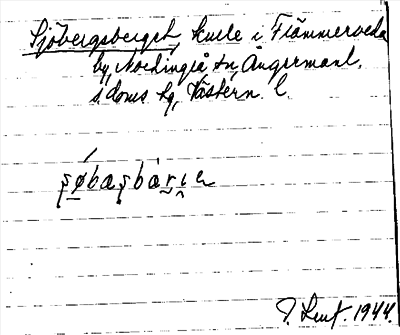 Sjöbergsberget, kulle i Främmerveda
by, Nordingrå sn, Ångermanl.
s doms hg, Västern. l.
ʂøbasbærɩe
1944.